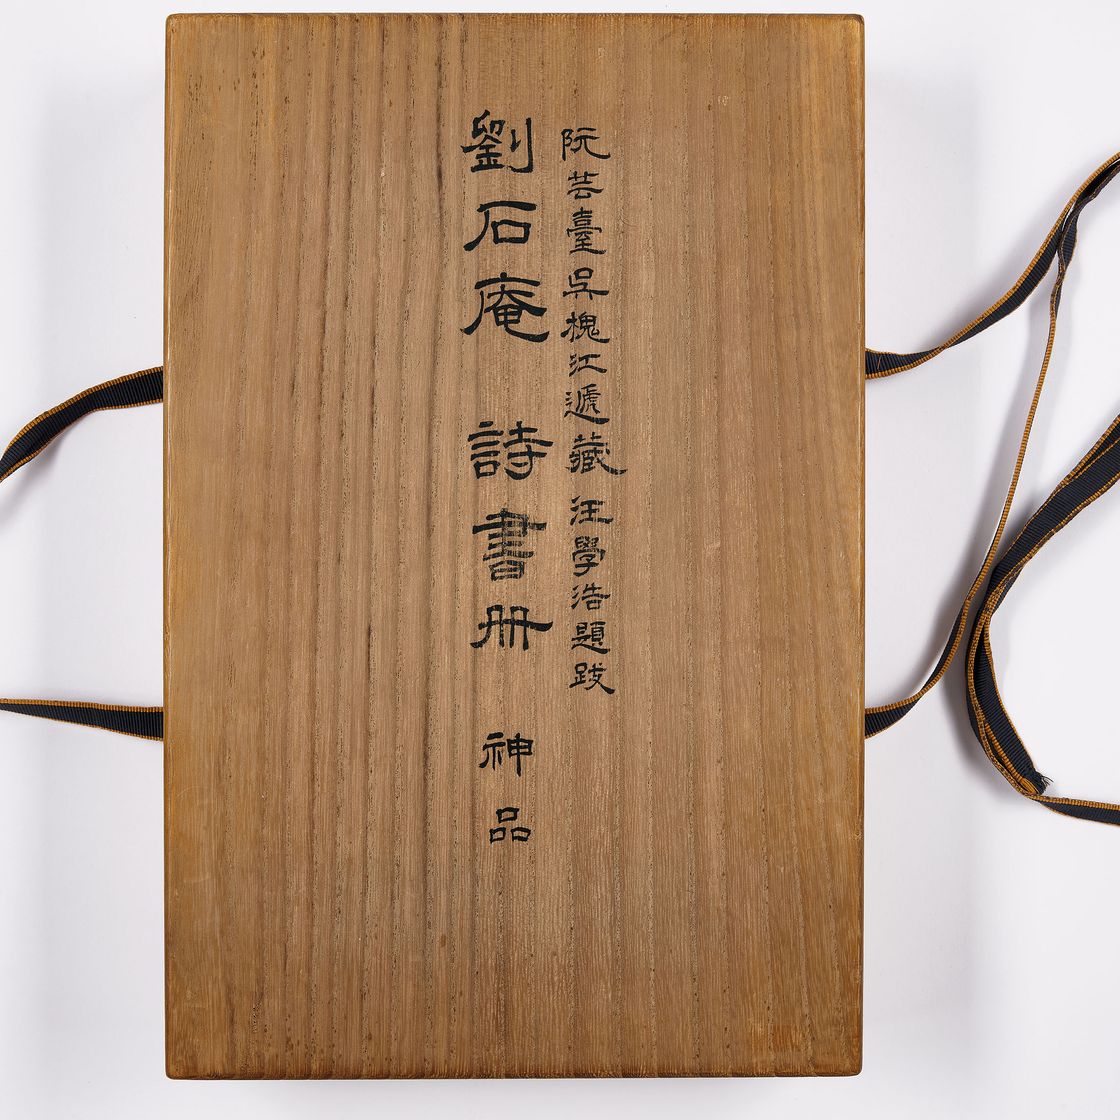 阮芸臺吳槐江遞藏 汪學浩題跋
劉石庵 詩書册 神品